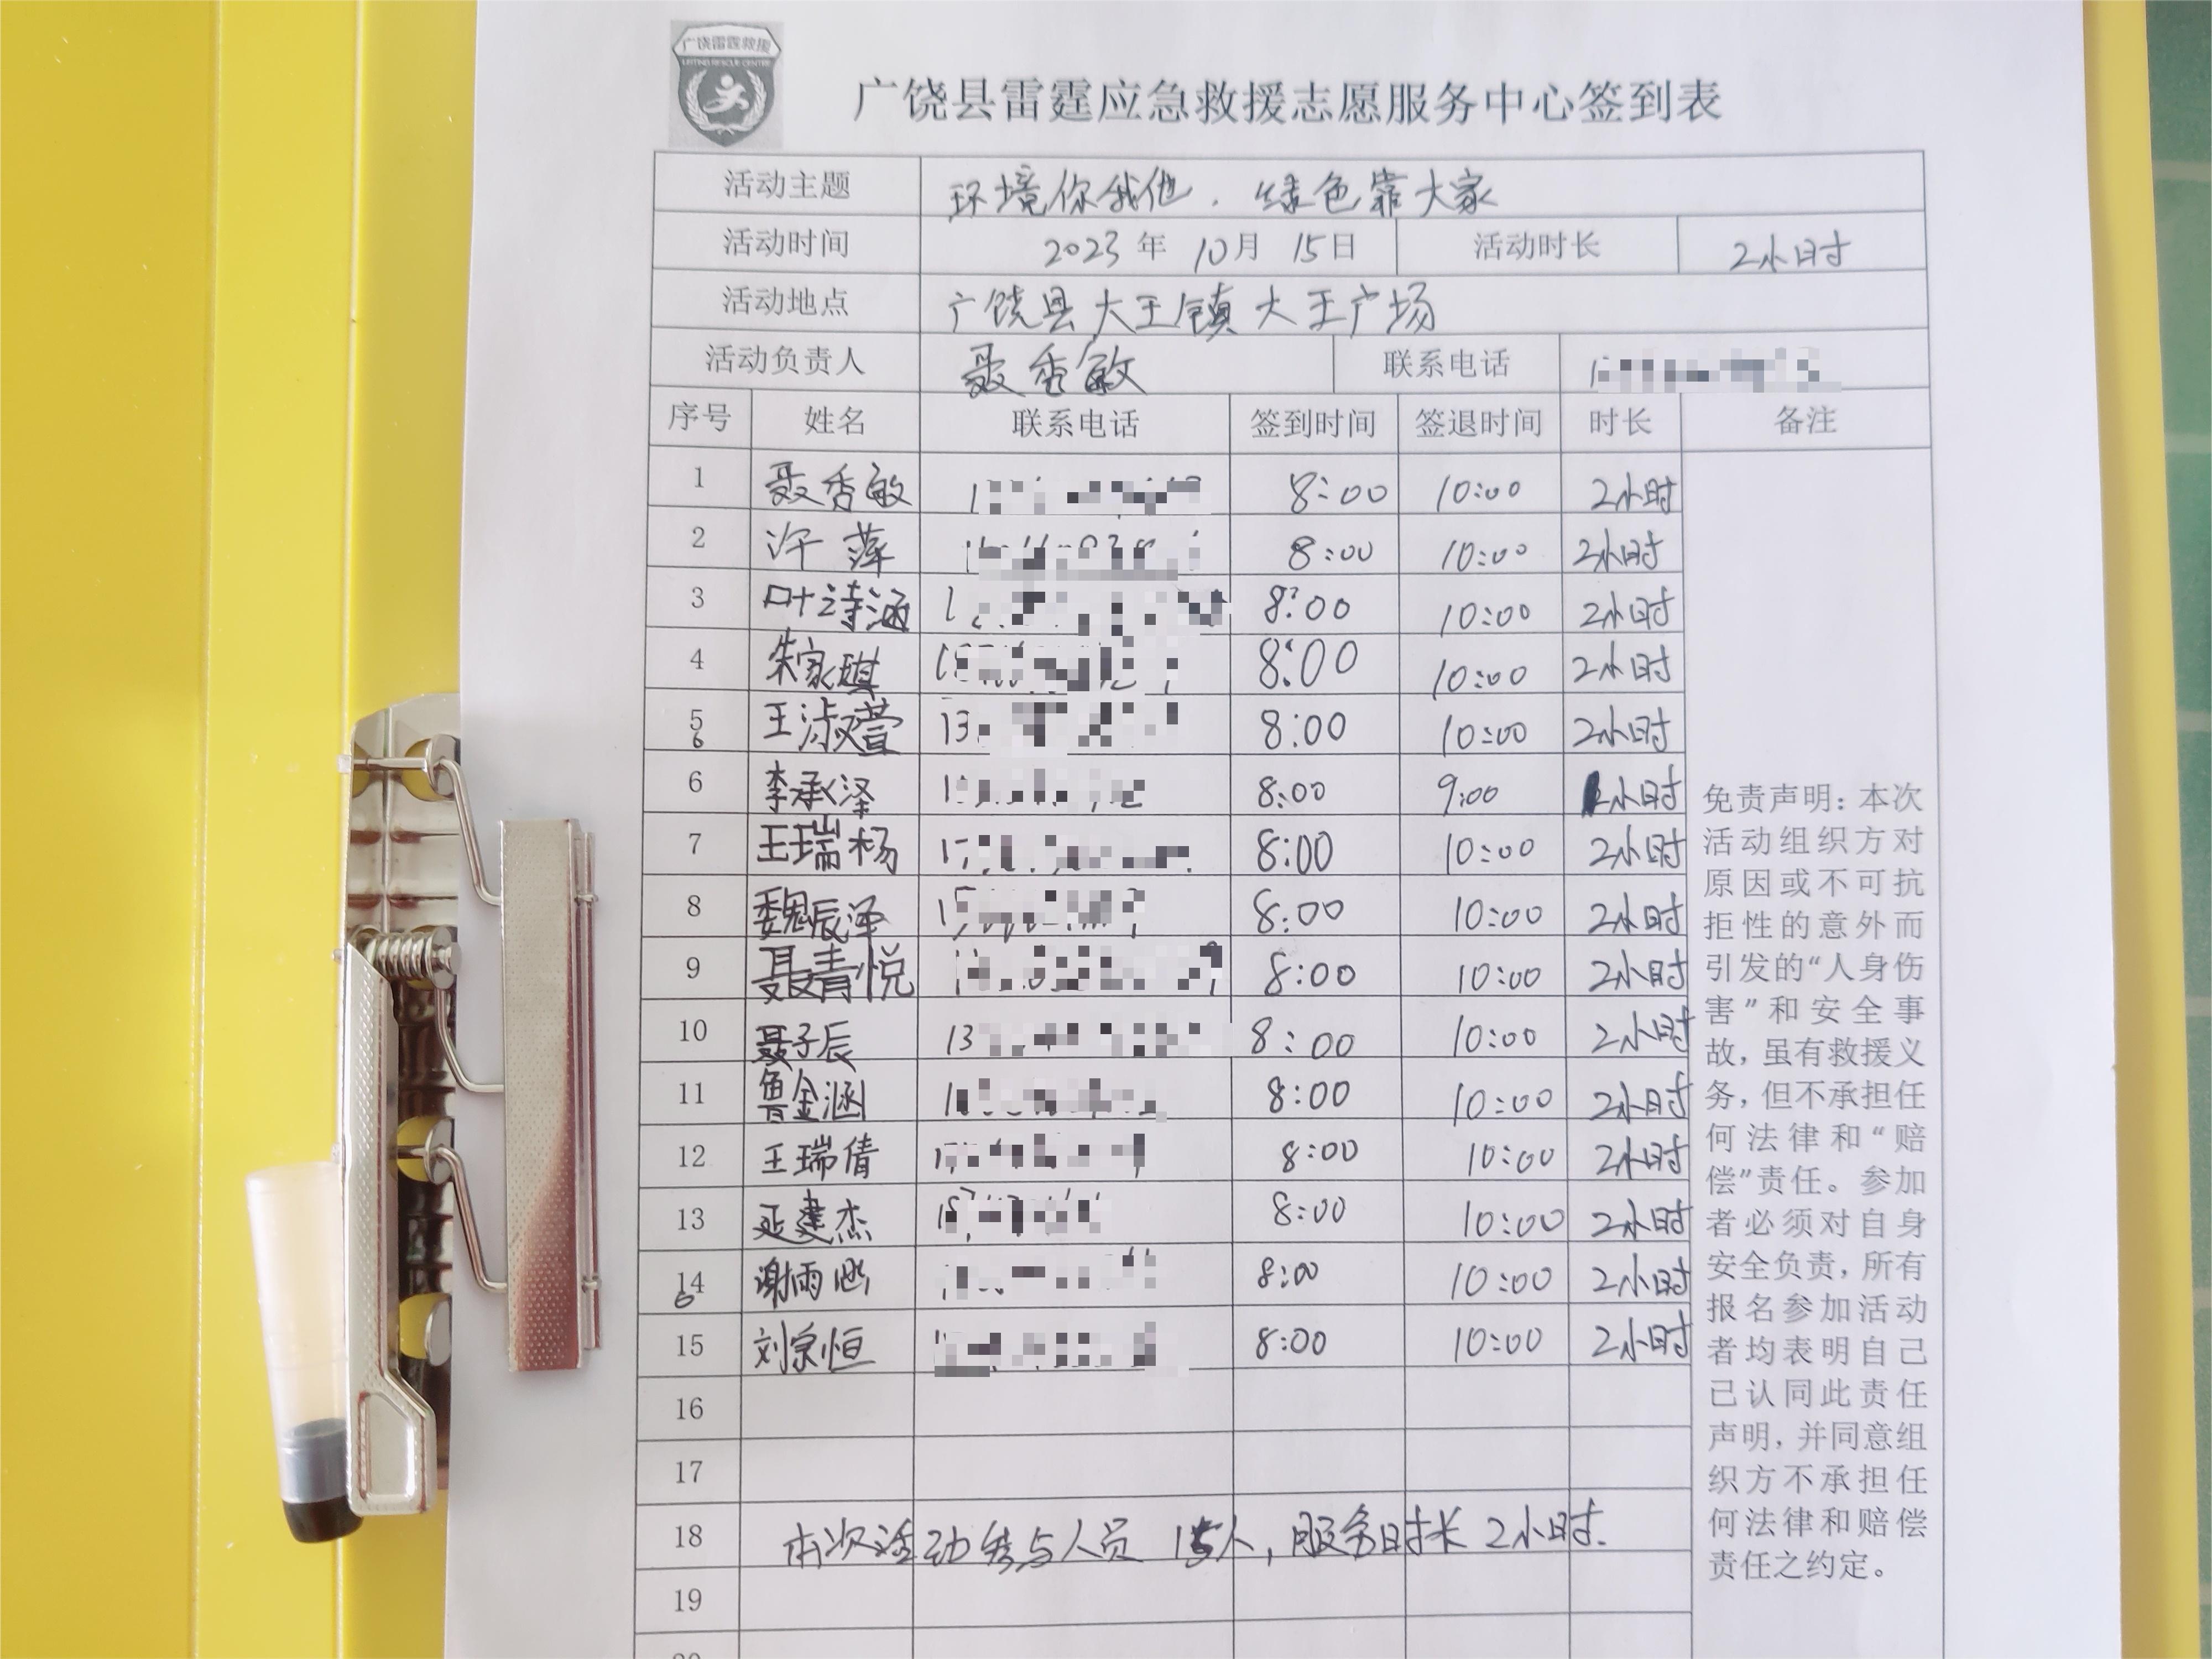 广饶雷霆救援
广饶县雷霆应急救援志愿服务中心签到表
活动主题 环境你我他，绿色靠大家
活动时间 2023年 10月 15日 活动时长 2小时
活动地点 广饶县大王镇大王广场
活动负责人 聂秀敏 联系电话
序号 姓名 联系电话 签到时间 签退时间 时长 备注
1 聂秀敏 8:00 10:00 2小时
2 许萍 8:00 10:00 2小时
3 叶诗涵 8:00 10:00 2小时
4 朱家琪 8:00 10:00 2小时
5 6 王淑萱 13 8:00 10:00 2小时
6 李承泽 8:00 9:00 小时
7 王瑞杨 8:00 10:00 2小时
8 魏辰泽 8:00 10:00 2小时
9 聂青悦 8:00 10:00 2小时
10 聂子辰 13 8:00 10:00 2小时
11 鲁金涵 8:00 10:00 2小时
12 王瑞倩 8:00 10:00 2小时
13 延建杰 8:00 10:00 2小时
14 6 谢雨涵 8:00 10:00 2小时
15 刘宗恒 8:00 10:00 2小时
16
17
18 本次活动参与人员 15人，服务时长 2小时.
19
免责声明：本次
活动组织方对
原因或不可抗
拒性的意外而
引发的“人身伤
害”和安全事
故，虽有救援义
务，但不承担任
何法律和“赔
偿”责任。参加
者必须对自身
安全负责，所有
报名参加活动
者均表明自己
已认同此责任
声明，并同意组
织方不承担任
何法律和赔偿
责任之约定。